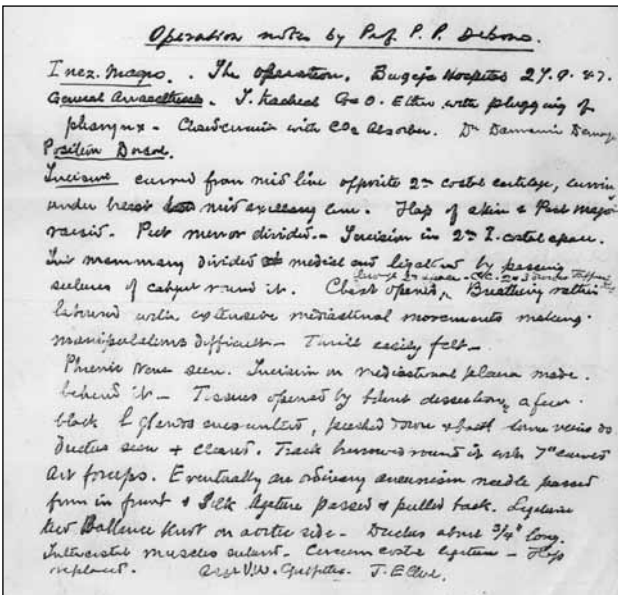 Operation notes by Prof. P. P. Debono.
Inez. Magro. . The operation. Bugeja Hospital 27.9.47.
General Anaesthesia. I. tracheal G & O. Ether with plugging of
pharynx - Closed circuit with CO2 Absorber. Dr
Position Dorsal.
Incision curved from mid line opposite 2nd costal cartilage, curving
under breast mid axillary line. Flap of skin & Pect major
raised. Pect minor divided - Incision in 2nd I. costal space.
Int mammary divided medial and ligatured by passing
through 2nd space - 2 & 3 divided
sutures of catgut round it. Chest opened, Breathing rather
laboured with extensive mediastinal movements making
manipulations difficult - Thrill easily felt -
Phrenic Nerve seen. Incision in mediastinal pleura made
behind it - Tissues opened by blunt dissection, a few
black l glands encountered, pushed down & back some veins do
Ductus seen & cleared. Track burrowed round it with 7" curved
Art forceps. Eventually an ordinary aneurism needle passed
from in front & Silk ligature passed & pulled back. Ligature
tied Ballance Knot on aortic side - Ductus about 3/4" long.
Intercostal muscles sutured - Circum costal ligature - Flap
replaced. Asst V.W. Griffiths. J. E